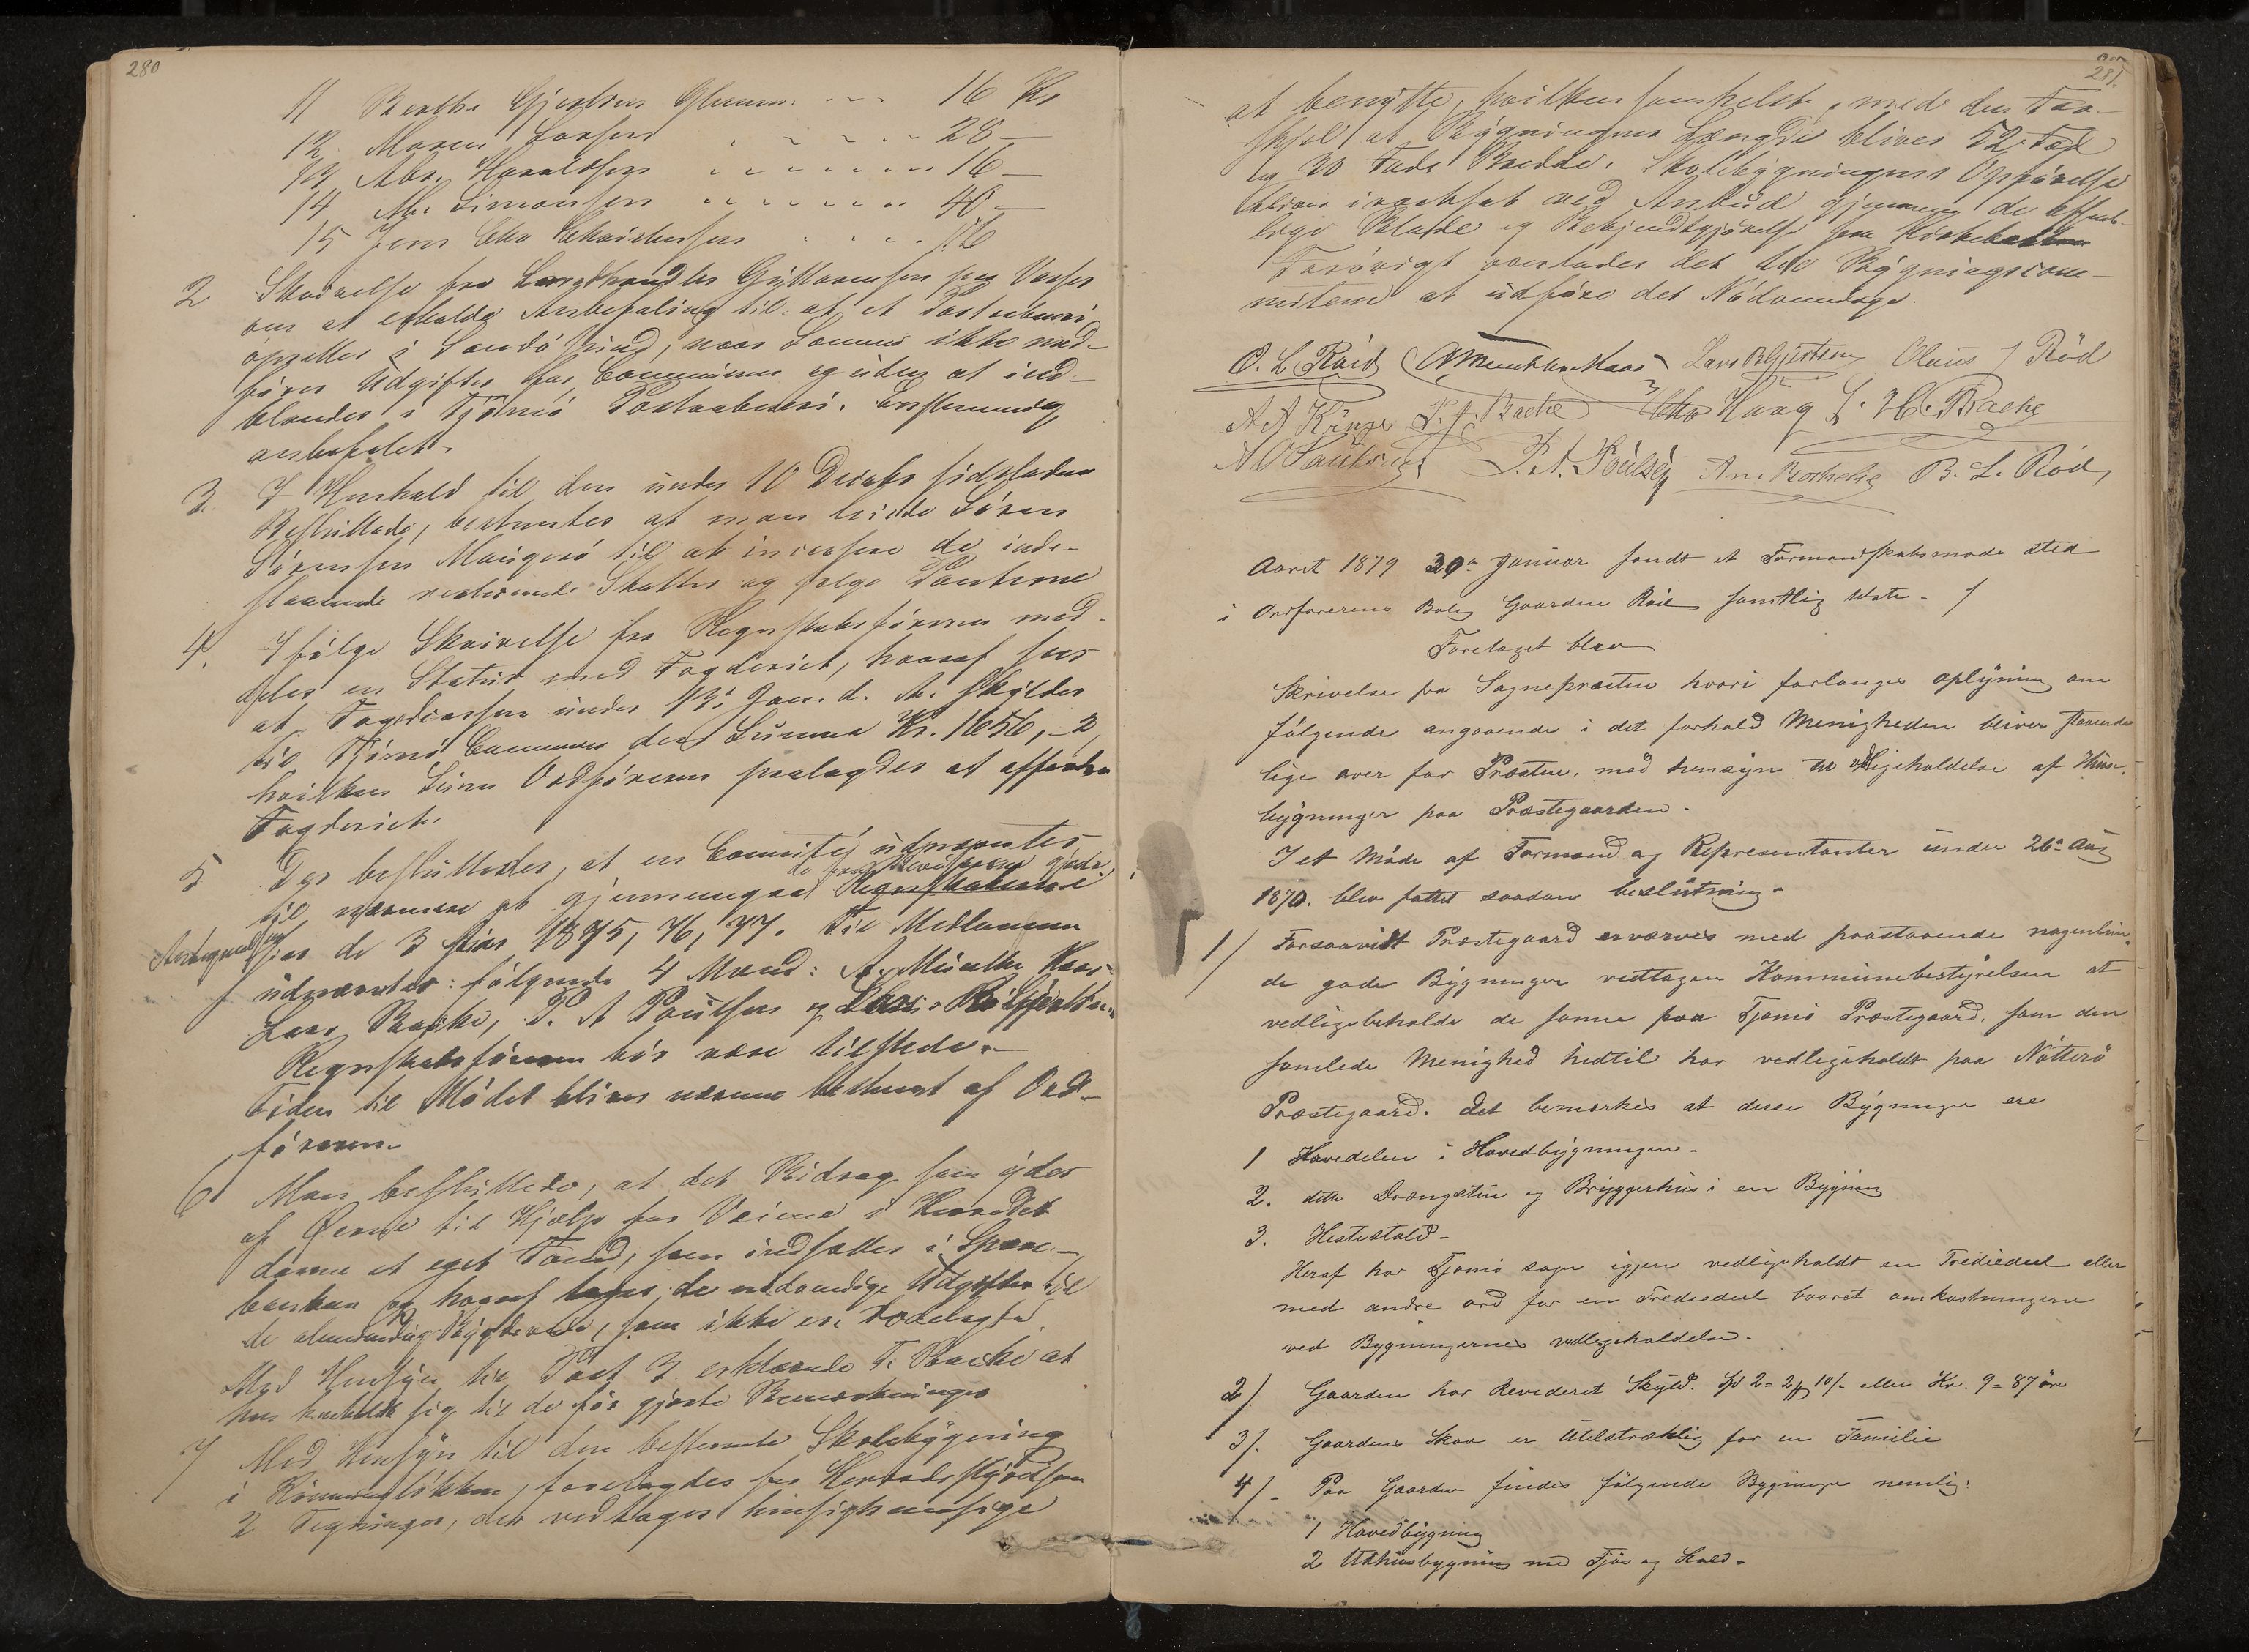 280
11 Berthe Gjertsen Glenne. - - - 16 Kr
12 Maren Larsen - - - - 28 —
13 Abr. Haraldsen - - - - - 16 —
14 Ab. Simonsen - - - - - 40 —
15 Jens Chr Christensen - - - - 16
2 Skrivelse fra Landhandler Guttormsen paa Vasser
om at erholde Anbefaling til at et Postaabneri
oprettes i Sandösund, naar Samme ikke med-
fører Udgifter for Communen og uden at ind-
blandes i Tjömö Postaabneri. Enstemmig
anbefalet.
3. I Henhold til den under 10 Decebr sidstleden
Besluttede, bestemtes at man leiede Sören
Sörensen Maugerö til at incassere de inde-
staaende resterende Skatter og følge Panterne
4. Ifølge Skrivelse fra Regnskabsføreren med-
deles en Status med Fogderiet, hvoraf sees
at Fogedcassen under 13. Jan. d. A. skylder
til Tjömö Commune den Summa Kr. 1656,-2,
hvilken Sum Ordføreren paalagdes at affordre
Fogderiet.
5 Der besluttedes, at en Comité udnævntes
til nærmere at gjennemgaa
for de 3 Aar 1875, 76, 77. Til Medlemmer
udnævntes følgende 4 Mænd: A. Münster Kaas
Lars Bache, P. A Poulsen og Lars R Gjertsen
Regnskabsføreren bör være tilstede.
Tiden til Mödet bliver nærmere bestemt af Ord-
føreren.
6 Man besluttede, at det Bidrag som ydes
af Øerne til Hjælp for Veiene i Herredet
danne et eget Fond, som indsættes i Spare-
banken og hvoraf tages de nødvendige Udgifter til
de almindelige Bygdeveie, som ikke ere rodelagte.
Med Hensyn til Post 3 erklærede T. Bache at
han henholdt sig til de før gjorte Bemærkninger
7 Med Hensyn til den bestemte Skolebygning
i Rönningløkken, forelagdes for Herredsstyrelsen
2 Tegninger, der vedtages hensigtsmæssige
281.
at benytte, hvilkensomhelst, med den For-
skjel at Bygningens Længde bliver 52 Fod
og 20 Fods Bredde. Skolebygningens Opførelse
bliver iværksat ved Anbud gjennem de offent-
lige Blade og Bekjendtgjørelse fra Kirkebakken
Forövrigt overlades det til Bygningscom-
miteen at udføre det Nödvendige.
O. L. Röid A Münster Kaas Lars R Gjertsen Olaus J Röd
A A Krüge T. J. Bache Chr Haag J. H. Bache
A O Paulsen P. A. Poulsen B. L. Röd
Aaret 1879 30te Januar fandt et Formandskabsmøde sted
i Ordførerens Bolig Gaarden Röid samtlig mødte - /
Foretaget blev
Skrivelse fra Sognepræsten hvori forlanges oplysning om
følgende angaaende i det forhold Menigheden bliver staaende
lige over for Præsten, med hensyn til vedligeholdelse af Huse-
bygninger paa Præstegaarden.
I et Møde af Formænd og Representanter under 26de Aug
1870. blev fattet saadan beslutning.
1/ Forsaavidt Præstegaard erværves med paastaaende nogenlun-
de gode Bygninger vedtager Kommunebestyrelsen at
vedligebeholde de samme paa Tjømö Præstegaard, som den
samlede Menighed hidtil har vedligeholdt paa Nøtterö
Præstegaard. Det bemærkes at disse Bygninger ere
1 Havedelen i Hovedbygningen.
2. dette Drængestue og Bryggerhus i en Bygning
3. Hestestald.
Heraf har Tjømö sogn igjen vedligeholdt en Trediedeel eller
med andre ord for en Trediedeel baaret omkostningerne
ved Bygningernes vedligeholdelse.
2/. Gaarden har Revideret Skyld. Spd 2 = 2 10/- eller Kr. 9 = 87 öre
3/. Gaardens Skov er Utilstrækkelig for en Familie
4/. Paa Gaarden findes følgende Bygninger nemlig:
1 Hovedbygning
2 Udhusbygning med Fjøs og Stald.